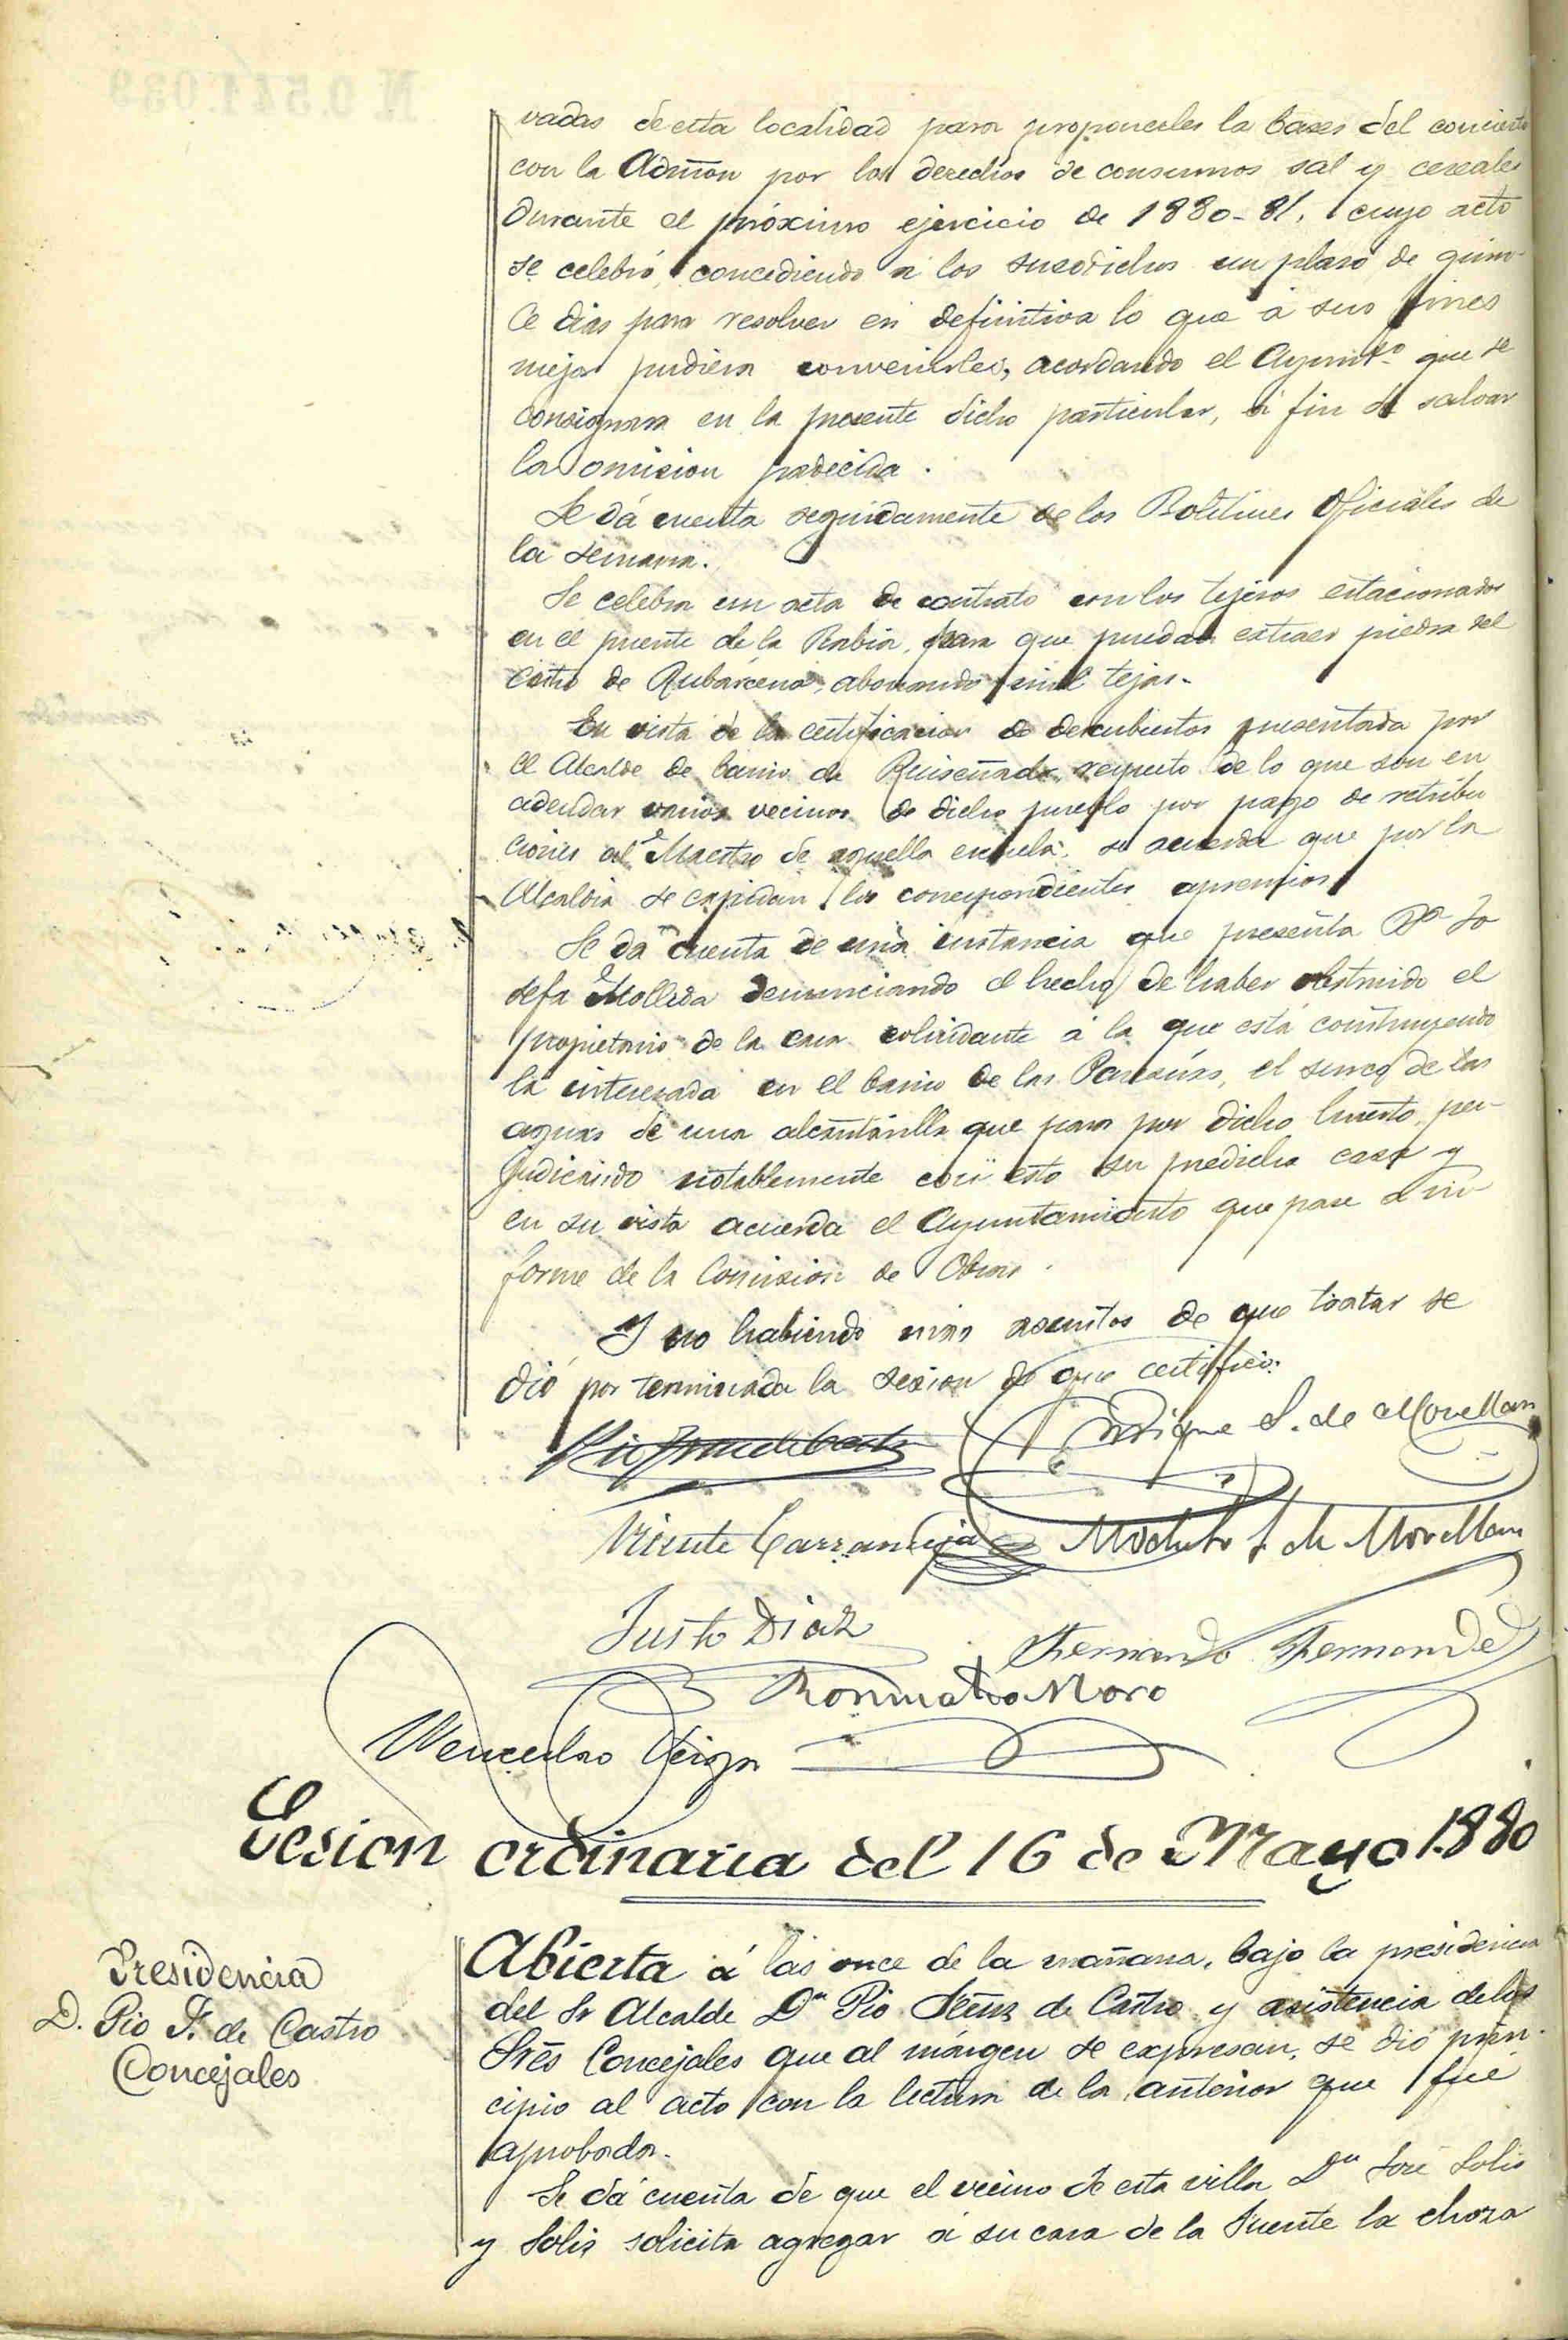 vadas de esta localidad para proponerles la bases del concierto
con la Admon por los derechos de consumos sal y cereales
durante el próximo ejercicio de 1880-81, cuyo acto
se celebró, concediendo á los susodichos un plaso de quin-
ce dias para resolver en definitiva lo que á sus fines
mejor pudiera convenirles, acordando el Ayuntº que se
consignara en la presente dicho particular, á fin de salvar
la omision padecida.
Se dá cuenta seguidamente de los Boletines Oficiales de
la semana.
Se celebra un acta de contrato con los tejeros estacionados
en el puente de la Rabia, para que puedan extraer piedra del
de Rubárcena, abonando mil tejas.
En vista de la certificacion de descubiertos presentada por
el Alcalde de barrio de Ruiseñada, respecto de lo que son en
adeudar varios vecinos de dicho pueblo por pago de retribu
ciones al Maestro de aquella escuela, se acuerda que por la
Alcaldia se expidan los correspondientes apremios
Se da cuenta de una instancia que presenta Dª Jo
sefa Molleda denunciando el hecho de haber obstruido el
propietario de la casa colindante á la que está construyendo
la interesada en el barrio de las, el surco de las
aguas de una alcantarilla que pasa por dicho huerto, per-
judicando notablemente con esto su predicha casa y
en su vista acuerda el Ayuntamiento que pase á in
forme de la Comision de Obras.
Y no habiendo mas asuntos de que tratar se
dió por terminada la sesion de que certifico.
Enrique S. de Movellan
Vicente Carrandeja Modesto S. de Movellan
Justo Diaz Fernando Fernandez
Romualdo Moro
Wenceslao Veiga
Sesion ordinaria del 16 de Mayo 1880
Presidencia
D. Pio F. de Castro
Concejales
Abierta á las once de la mañana, bajo la presidencia
del Sr Alcalde Dn Pio de Castro y asistencia de los
Sres Concejales que al márgen se expresan, se dio prin-
cipio al acto con la lectura de la anterior que fue
aprobada.
Se dá cuenta de que el vecino de esta villa Dn José Solis
y Solis solicita agregar á su casa de la Fuente la choza